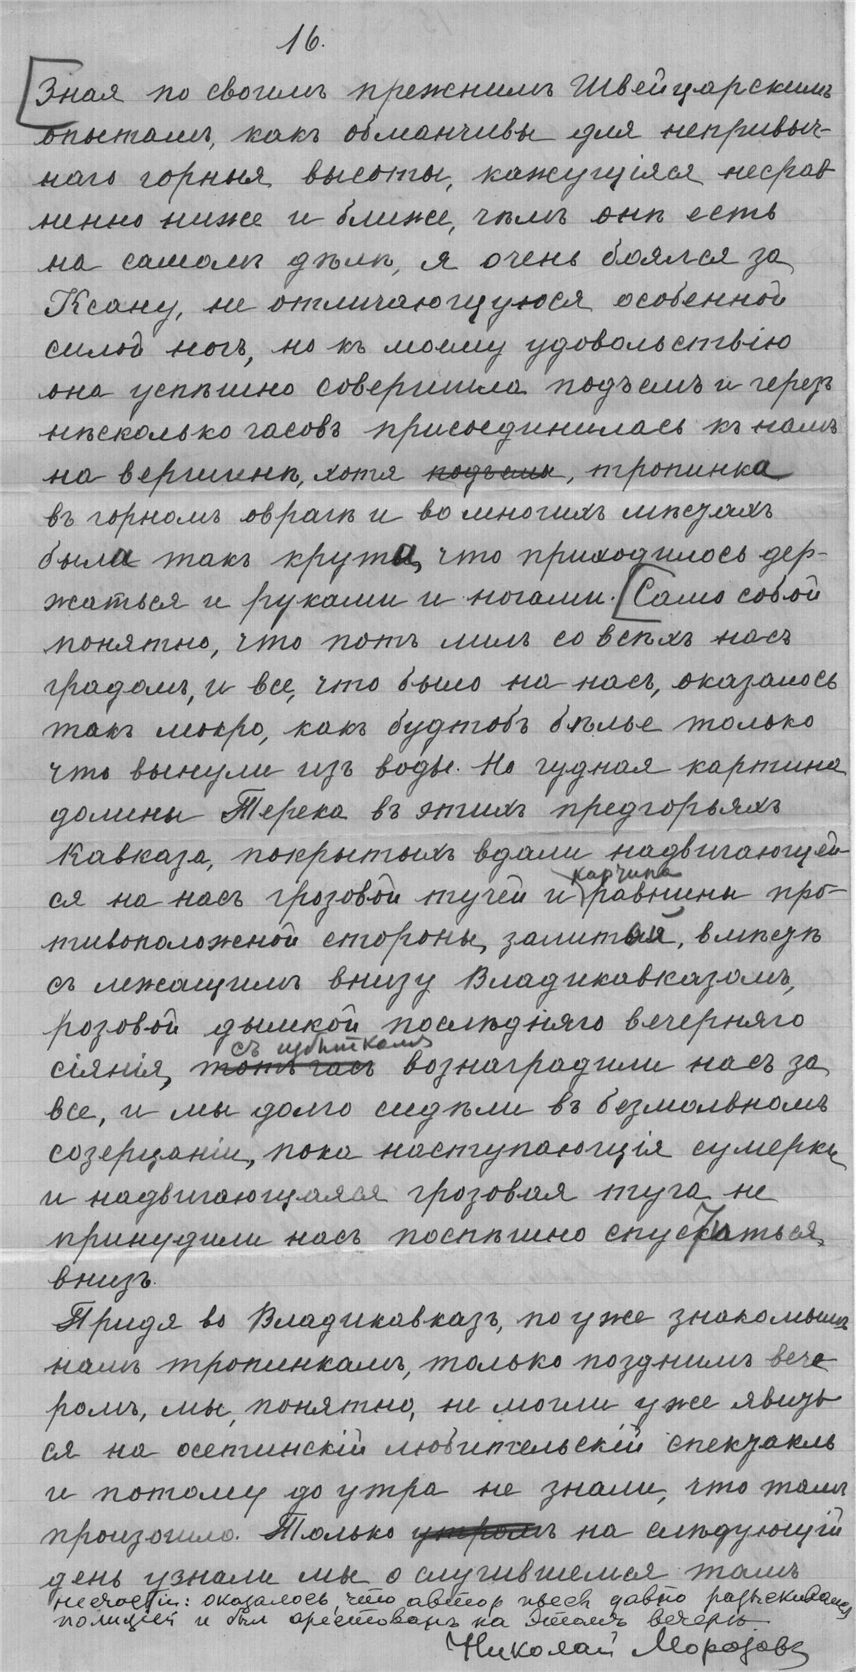 16.
[Зная по своимъ прежнимъ Швейцарскимъ
опытамъ, какъ обманчивы для непривыч-
наго горныя высоты, кажущіяся несрав
ненно ниже и ближе, чѣмъ онѣ есть
на самомъ дѣлѣ, я очень боялся за
Ксану, не отличающуюся особенной
силой ногъ, но къ моему удовольствію
она успѣшно совершила подъемъ и черезъ
нѣсколько часовъ присоединилась къ намъ
на вершинѣ, хотя подъемъ, тропинка
въ горномъ оврагѣ и во многихъ мѣстахъ
была такъ крута, что приходилось дер-
жаться и руками и ногами. [Само собой
понятно, что потъ лилъ со всѣхъ насъ
градомъ, и все, что было на насъ, оказалось
такъ мокро, какъ будтобъ бѣлье только
что вынули изъ воды. Но чудная картина
долины Терека въ этихъ предгорьяхъ
Кавказа, покрытыхъ вдали надвигающей-
ся на насъ грозовой тучей и картина равнины про-
тивоположной стороны, залитой, вмѣстѣ
съ лежащимъ внизу Владикавказомъ,
розовой дымкой послѣдняго вечерняго
сіянія, тотчасъ съ избыткомъ вознаградили насъ за
все, и мы долго сидѣли въ безмолвномъ
созерцаніи, пока наступающія сумерки
и надвигающаяся грозовая туча не
принудили насъ поспѣшно спускаться
внизъ.
Придя во Владикавказъ, по уже знакомымъ
намъ тропинкамъ, только позднимъ вече
ромъ, мы, понятно, не могли уже явить
ся на осетинскій любительскій спектакль
и потому до утра не знали, что тамъ
произошло. Только утромъ на слѣдующій
день узнали мы о случившемся тамъ
несчастіи: оказалось, что автор пьесы давно разыскивался
полиціей и был арестованъ на этомъ вечерѣ.
Николай Морозовъ